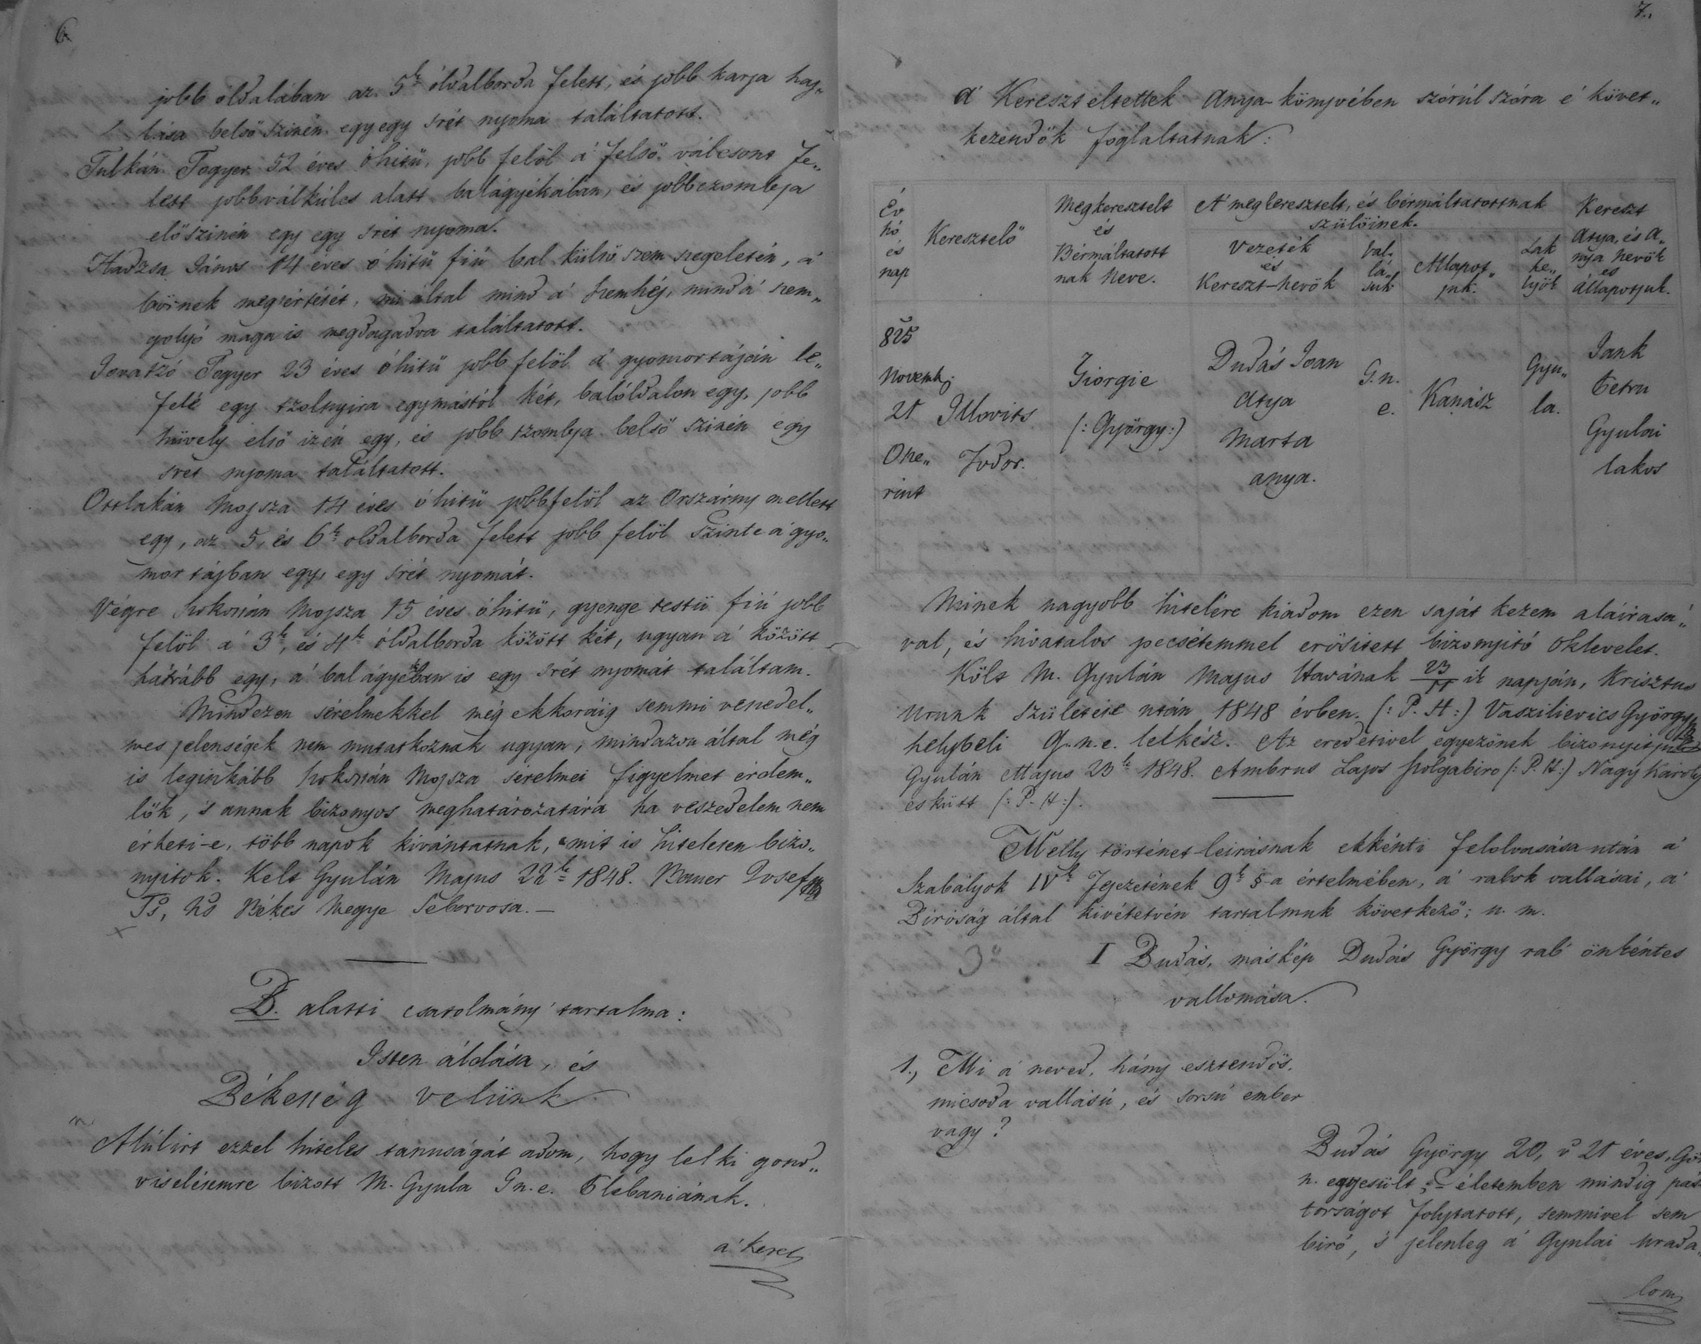 6.
jobb oldalában az 5k óldalborda felett, és jobb karja haj„
lása belső szinén egy egy srét nyoma találtatott.
Tulkán Togyer 52 éves óhitü, jobb felöl á felső válcsont fe„
lett jobb válkülcs alatt balágyékában, és jobbczombja
előszinén egy egy srét nyoma.
Hadzsa János 14 éves óhitü fiú bal külső szem szegeletén, á
bőrnek megsértését, mi által mind á szemhéj, mind á szem„
golyó maga is megdagadva találtatott.
Togyer 23 éves óhitü jobb felöl á gyomor táján le„
felé egy tzolnyira egymástól két, balóldalon egy, jobb
hüvely első izén egy, és jobb tzombja belső szinén egy
srét nyoma találtatott.
Ottlakán Mojsza 14 éves óhitü jobbfelöl az Orszárny mellett
egy, az 5. és 6k oldalborda felett jobb felöl szinte á gyo„
mor tájban egy, egy srét nyomát.
Végre Mojsza 15 éves óhitü, gyenge testü fiú jobb
felöl á 3k, és 4k óldalborda között két, ugyan á között
hátrább egy, á bal ágyékban is egy srét nyomát találtam.
Mindezen sérelmekkel még ekkoráig semmi veszedel„
mes jelenségek nem mutatkoznak ugyan, mindazon által még
is leginkább Mojsza sérelmei figyelmet érdem„
lők, 's annak bizonyos meghatározatára ha veszedelem nem
érheti-e, több napok kivántatnak, mit is hitelesen bizo„
nyitok. Kelt Gyulán Majus 22k 1848. Josef
Ts, Ns Békés Megye Seborvosa. —
B. alatti csatolmány tartalma:
Isten áldása, és
Békesség velünk
Alúlirt ezzel hiteles tanuságát adom, hogy lelki gond„
viselésemre bizott M. Gyula G.n.e. Plebaniának.
á' Keresz
7.
á Kereszteltettek Anya-könyvében szórúl szóra é követ„
kezendők foglaltatnak:
Év hó és nap
Keresztelő
Megkeresztelt és Bérmáltatott nak Neve.
A' megkeresztelt, és bérmáltatottnak szülőinek.
Vezeték és Kereszt-nevök
Val„ lá„ suk
Állapot„ juk.
Lak he„ lyök
Kereszt Atya, és A„ nya nevök és állapotjuk.
825 Novemb. 21 Ohe„ rint
Illovits Todor.
Giorgie (: György:)
Dudás Ioan Atya Marta anya.
G.n. e.
Kanász
Gyu„ la.
Iank Petru Gyulai lakos
Minek nagyobb hitelére kiadom ezen saját kezem aláirasá„
val, és hivatalos pecsétemmel erősitett bizonyitó Oklevelet.
Költ M. Gyulán Majus Havának 23/11 ik napján, Krisztus
Urunk születése után 1848 évben. (: P. H :) Vaszilievics György
helybeli G.n.e. lelkész. Az eredetivel egyezőnek bizonyitjuk
Gyulán Majus 23k 1848. Ambrus Lajos szolgabiro (: P. H :) Nagy Károly
eskütt (: P. H :).
Melly történet leirásnak ekkénti felolvasása után á
Szabályok IVk Fejezetének 9k §-a értelmében, á rabok vallásai, á
Biróság által kivétetvén tartalmuk következő; u. m.
I Budás, máskép Dudás György rab önkéntes
vallomása.
1., Mi á neved, hány esztendős,
micsoda vallású, és sorsú ember
vagy?
Budás György 20, v 21 éves, Gö
n. egyesült, életemben mindig pás
torságot folytatott, semmivel sem
biró, 's jelenleg á Gyulai urada„
lom